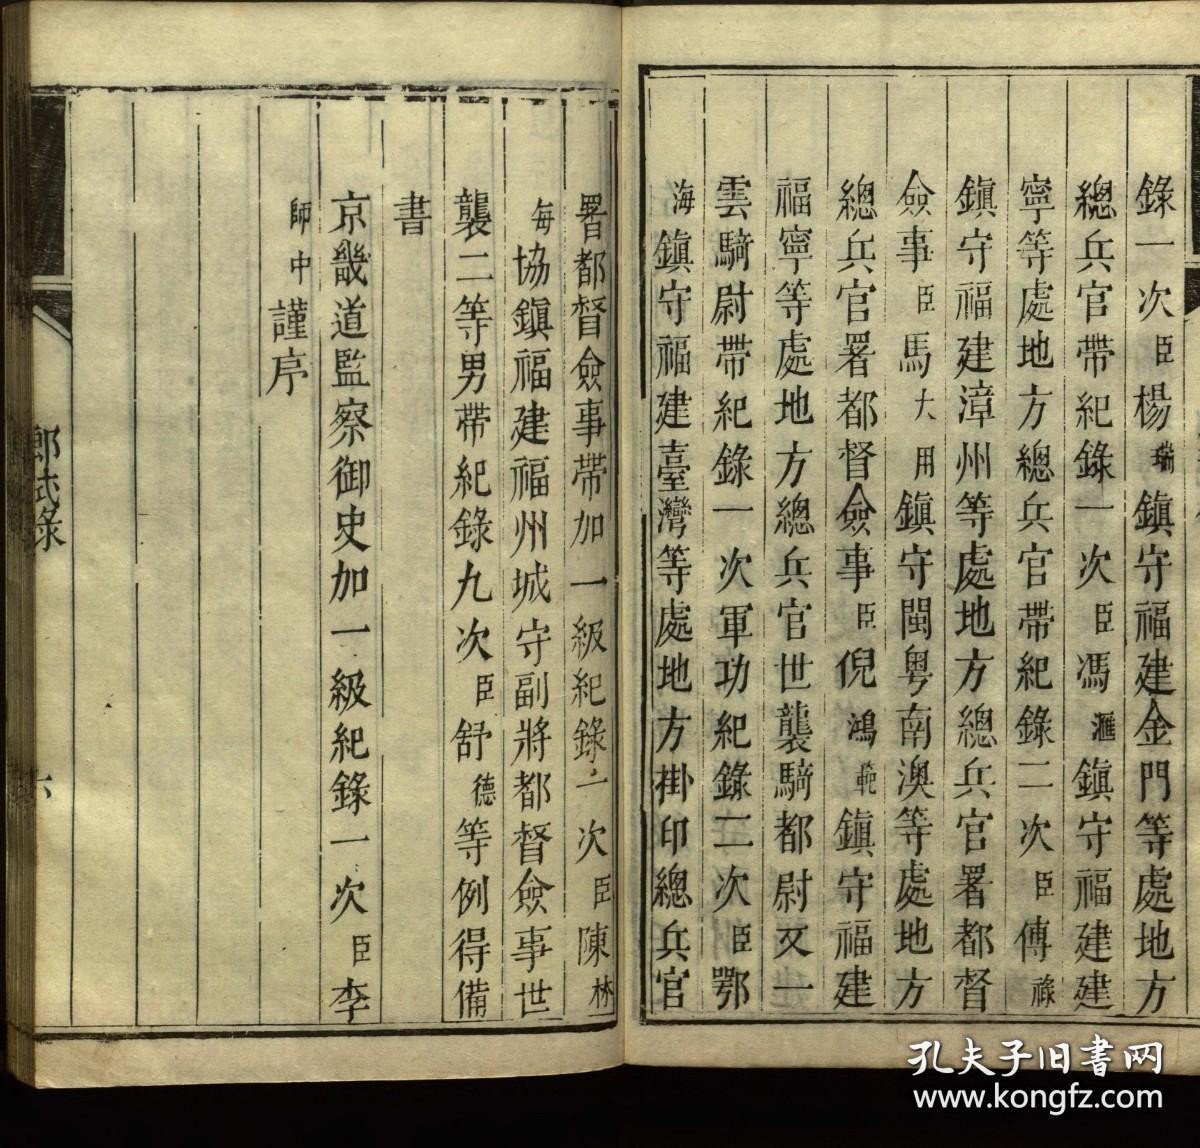 錄一次臣楊瑞鎮守福建金門等處地方
總兵官帶紀錄一次臣馮滙鎮守福建建
寧等處地方總兵官帶紀錄二次臣傅祿
鎮守福建漳州等處地方總兵官署都督
僉事臣馬大用鎮守閩粵南澳等處地方
總兵官署都督僉事臣倪鴻範鎮守福建
福寧等處地方總兵官世襲騎都尉又一
雲騎尉帶紀錄一次軍功紀錄二次臣鄂
海鎮守福建臺灣等處地方掛印總兵官
署都督僉事帶加一級紀錄一次臣陳林
每協鎮福建福州城守副將都督僉事世
襲二等男帶紀錄九次臣舒德等例得備
書
京畿道監察御史加一級紀錄一次臣李
師中謹序
鄉試錄
六
孔夫子旧书网
www.kongfz.com